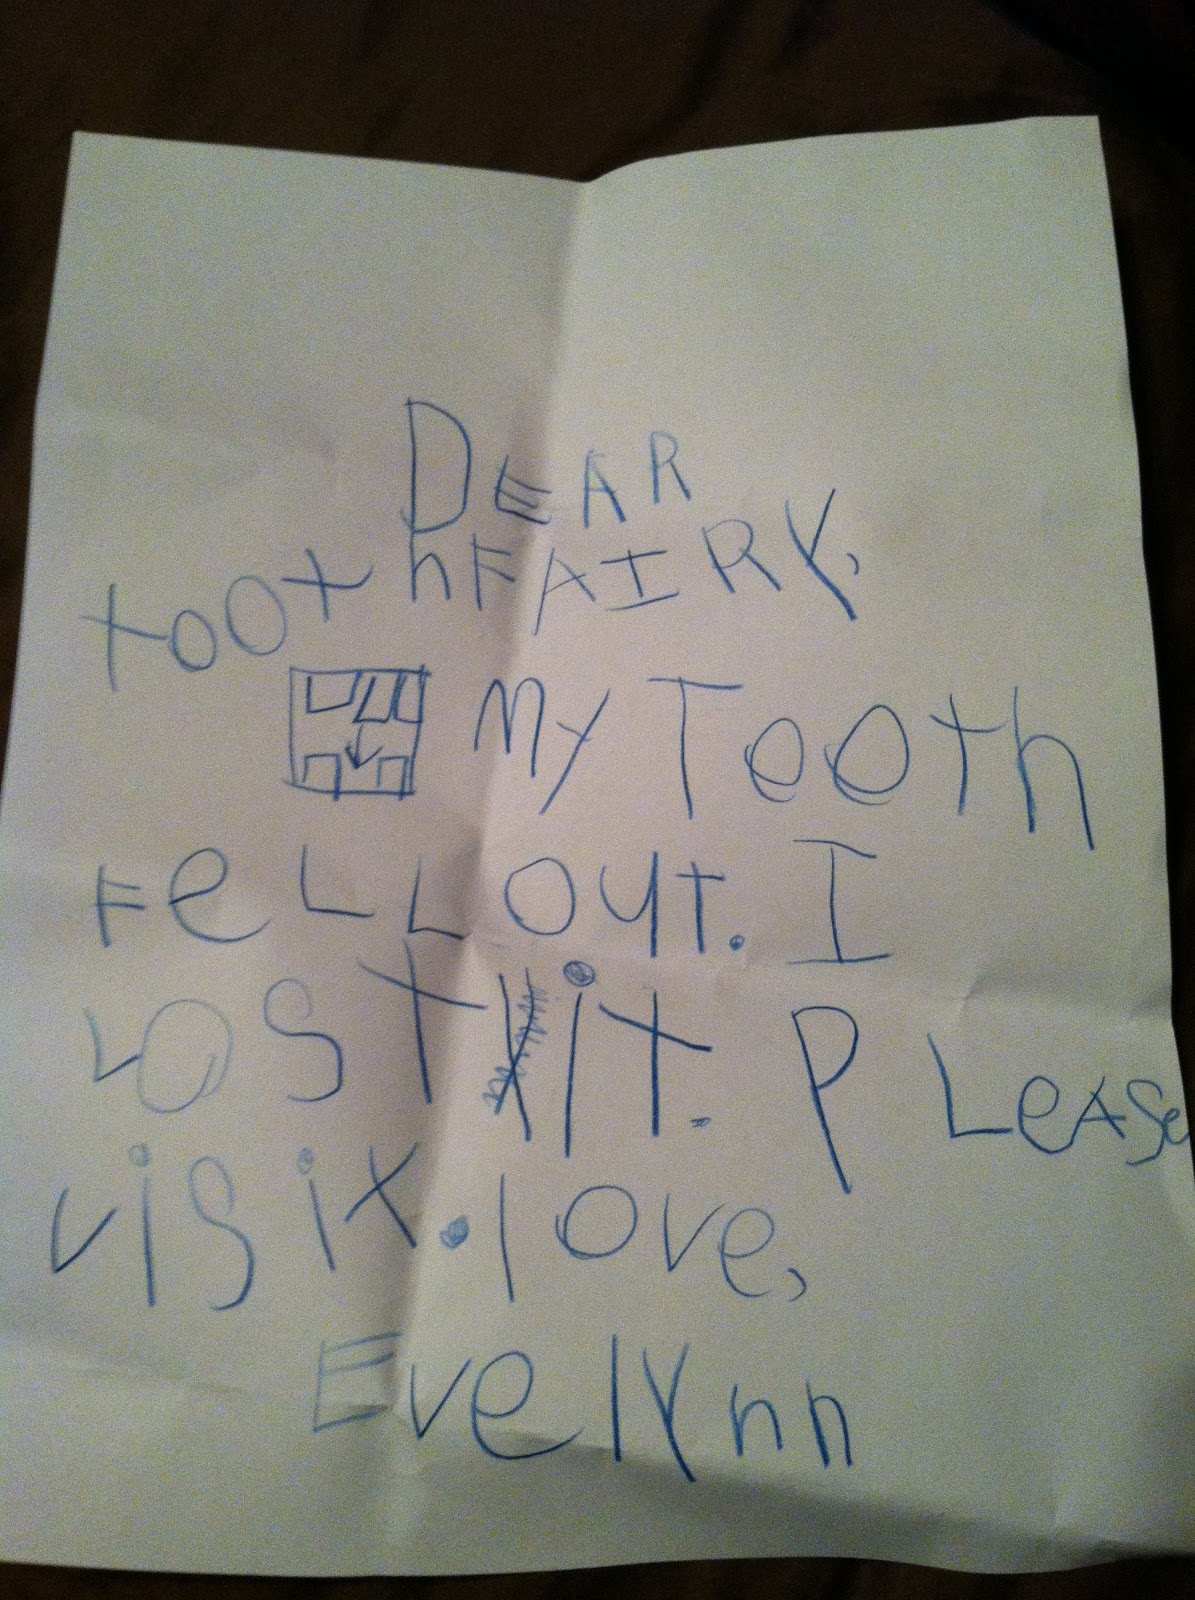 DEAR
toothFAIRY,
My Tooth
FeLL OuT. I
LOSt it. PLeASe
visit. love,
Evelynn